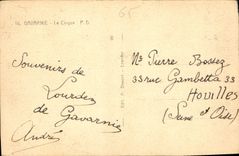 14. GAVARNIE - Le Cirque P.D.
65
Souvenirs de
Lourdes
de Gavarnie
André
Mr Pierre Bossez
33 rue Gambetta 33
HOUILLES
(Seine et Oise)